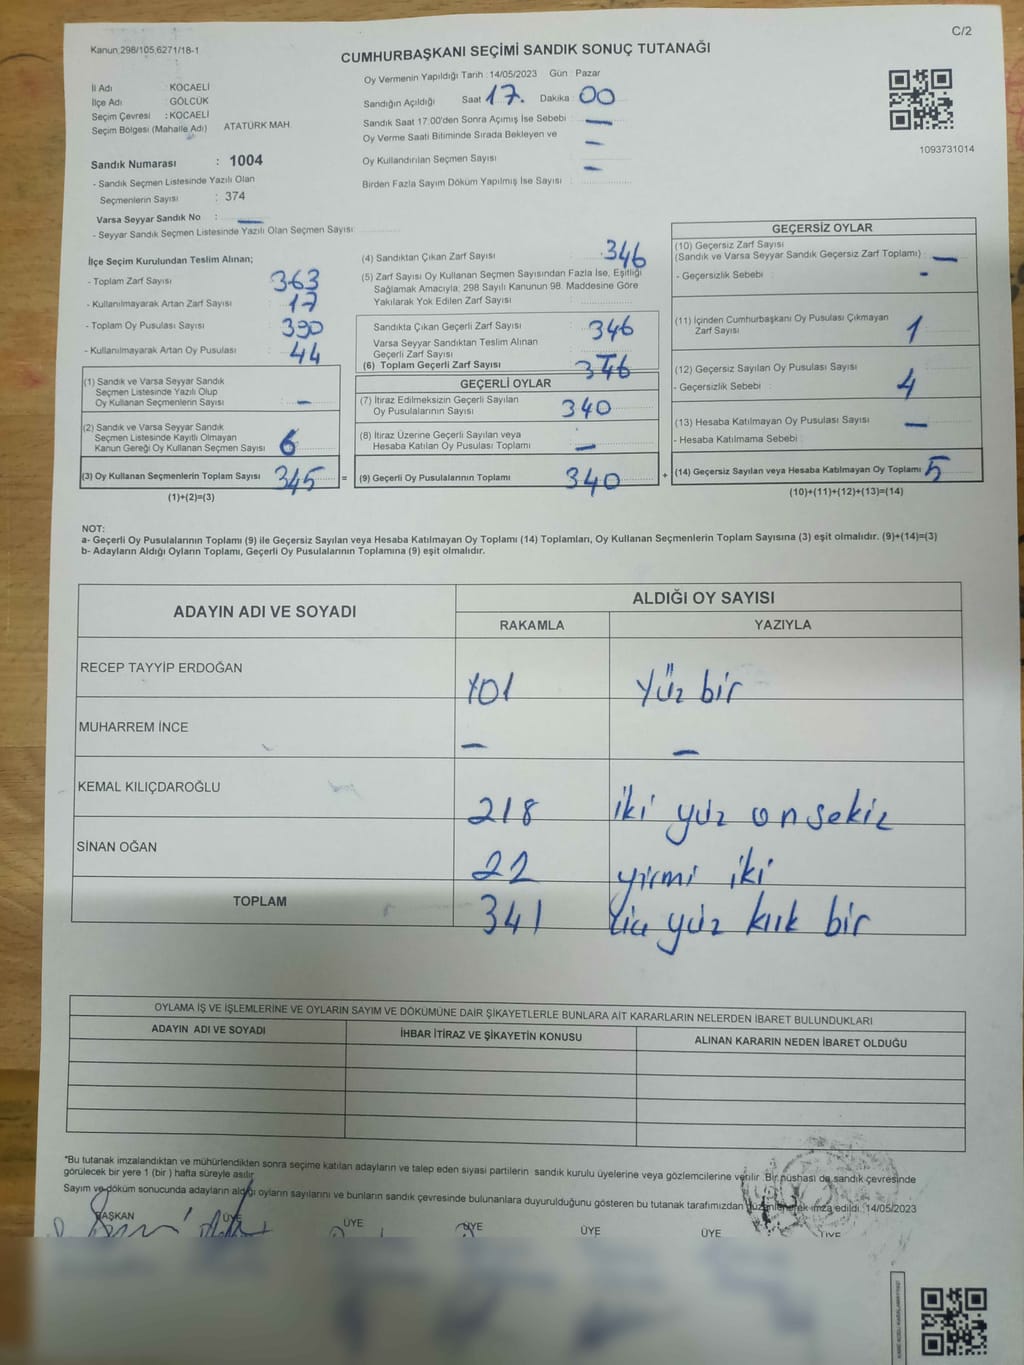 C/2
Kanun 298/105,6271/18-1
CUMHURBAŞKANI SEÇİMİ SANDIK SONUÇ TUTANAĞI
İl Adı : KOCAELİ
İlçe Adı : GÖLCÜK
Seçim Çevresi : KOCAELİ
Seçim Bölgesi (Mahalle Adı) ATATÜRK MAH.
Sandık Numarası : 1004
- Sandık Seçmen Listesinde Yazılı Olan
Seçmenlerin Sayısı : 374
Varsa Seyyar Sandık No : —
- Seyyar Sandık Seçmen Listesinde Yazılı Olan Seçmen Sayısı
Oy Vermenin Yapıldığı Tarih : 14/05/2023 Gün Pazar
Sandığın Açıldığı Saat 17. Dakika 00
Sandık Saat 17:00'den Sonra Açımış İse Sebebi : —
Oy Verme Saati Bitiminde Sırada Bekleyen ve —
Oy Kullandırılan Seçmen Sayısı —
Birden Fazla Sayım Döküm Yapılmış İse Sayısı :
1093731014
İlçe Seçim Kurulundan Teslim Alınan;
- Toplam Zarf Sayısı : 363
- Kullanılmayarak Artan Zarf Sayısı : 17
- Toplam Oy Pusulası Sayısı : 390
- Kullanılmayarak Artan Oy Pusulası : 44
(1) Sandık ve Varsa Seyyar Sandık
Seçmen Listesinde Yazılı Olup
Oy Kullanan Seçmenlerin Sayısı : —
(2) Sandık ve Varsa Seyyar Sandık
Seçmen Listesinde Kayıtlı Olmayan
Kanun Gereği Oy Kullanan Seçmen Sayısı : 6
(3) Oy Kullanan Seçmenlerin Toplam Sayısı 345 =
(1)+(2)=(3)
(4) Sandıktan Çıkan Zarf Sayısı : 346
(5) Zarf Sayısı Oy Kullanan Seçmen Sayısından Fazla İse, Eşitliği
Sağlamak Amacıyla; 298 Sayılı Kanunun 98. Maddesine Göre
Yakılarak Yok Edilen Zarf Sayısı :
Sandıkta Çıkan Geçerli Zarf Sayısı : 346
Varsa Seyyar Sandıktan Teslim Alınan
Geçerli Zarf Sayısı
(6) Toplam Geçerli Zarf Sayısı : 346
GEÇERLİ OYLAR
(7) İtiraz Edilmeksizin Geçerli Sayılan
Oy Pusulalarının Sayısı : 340
(8) İtiraz Üzerine Geçerli Sayılan veya
Hesaba Katılan Oy Pusulası Toplamı : —
(9) Geçerli Oy Pusulalarının Toplamı : 340 +
GEÇERSİZ OYLAR
(10) Geçersiz Zarf Sayısı
(Sandık ve Varsa Seyyar Sandık Geçersiz Zarf Toplamı) : —
- Geçersizlik Sebebi : -
(11) İçinden Cumhurbaşkanı Oy Pusulası Çıkmayan
Zarf Sayısı : 1
(12) Geçersiz Sayılan Oy Pusulası Sayısı
- Geçersizlik Sebebi : 4
(13) Hesaba Katılmayan Oy Pusulası Sayısı : —
- Hesaba Katılmama Sebebi
(14) Geçersiz Sayılan veya Hesaba Katılmayan Oy Toplamı 5
(10)+(11)+(12)+(13)=(14)
NOT:
a- Geçerli Oy Pusulalarının Toplamı (9) ile Geçersiz Sayılan veya Hesaba Katılmayan Oy Toplamı (14) Toplamları, Oy Kullanan Seçmenlerin Toplam Sayısına (3) eşit olmalıdır. (9)+(14)=(3)
b- Adayların Aldığı Oyların Toplamı, Geçerli Oy Pusulalarının Toplamına (9) eşit olmalıdır.
ADAYIN ADI VE SOYADI
ALDIĞI OY SAYISI
RAKAMLA YAZIYLA
RECEP TAYYİP ERDOĞAN 101 Yüz bir
MUHARREM İNCE — —
KEMAL KILIÇDAROĞLU 218 iki yüz onsekiz
SİNAN OĞAN 22 yirmi iki
TOPLAM 341 yüz kırk bir
OYLAMA İŞ VE İŞLEMLERİNE VE OYLARIN SAYIM VE DÖKÜMÜNE DAİR ŞİKAYETLERLE BUNLARA AİT KARARLARIN NELERDEN İBARET BULUNDUKLARI
ADAYIN ADI VE SOYADI İHBAR İTİRAZ VE ŞİKAYETİN KONUSU ALINAN KARARIN NEDEN İBARET OLDUĞU
*Bu tutanak imzalandıktan ve mühürlendikten sonra seçime katılan adayların ve talep eden siyasi partilerin sandık kurulu üyelerine veya gözlemcilerine verilir. Bir nüshası da sandık çevresinde
görülecek bir yere 1 (bir ) hafta süreyle asılır.
Sayım ve döküm sonucunda adayların aldığı oyların sayılarını ve bunların sandık çevresinde bulunanlara duyurulduğunu gösteren bu tutanak tarafımızdan düzenlenerek imza edildi. 14/05/2023
BAŞKAN ÜYE ÜYE ÜYE ÜYE ÜYE ÜYE